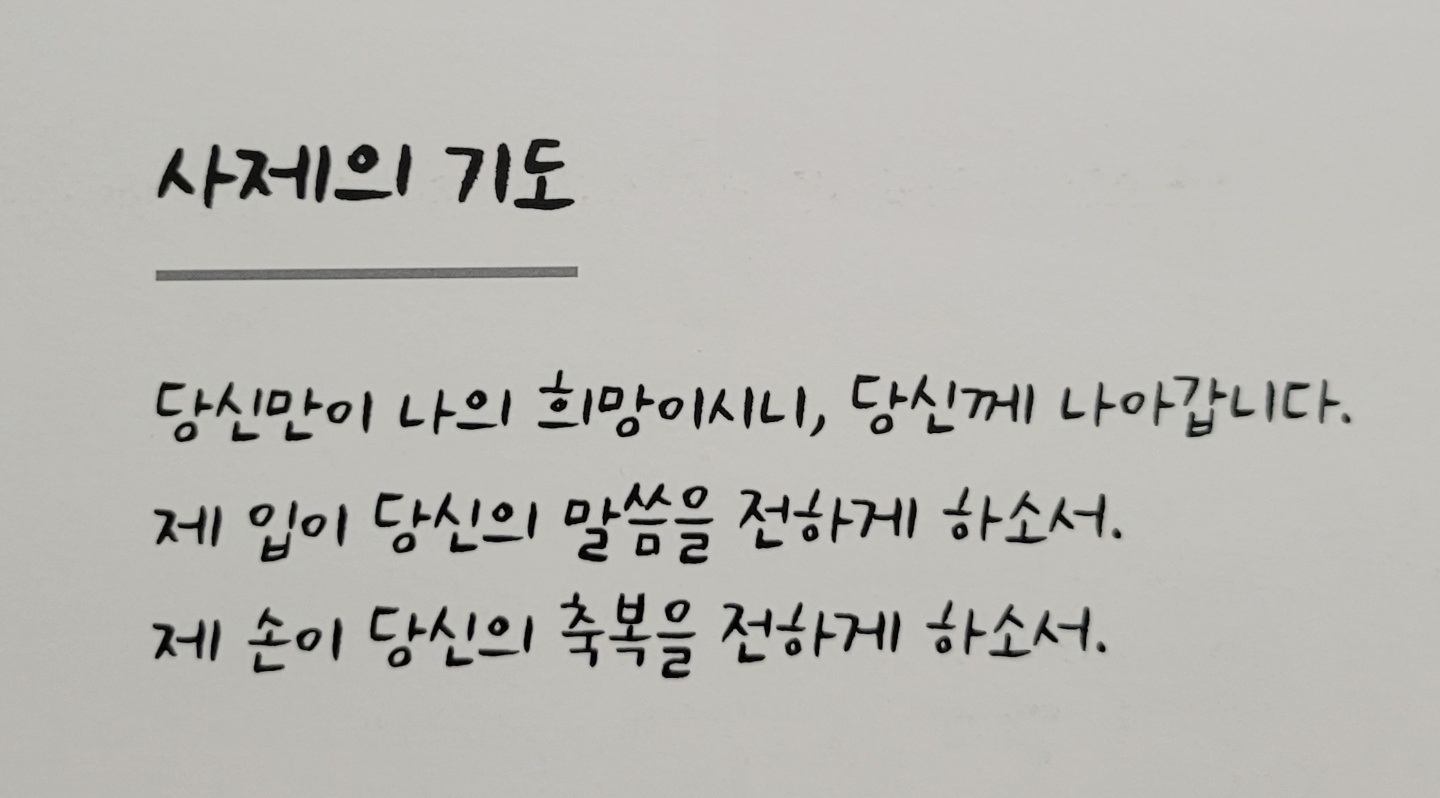 사제의 기도
당신만이 나의 희망이시니, 당신께 나아갑니다.
제 입이 당신의 말씀을 전하게 하소서.
제 손이 당신의 축복을 전하게 하소서.